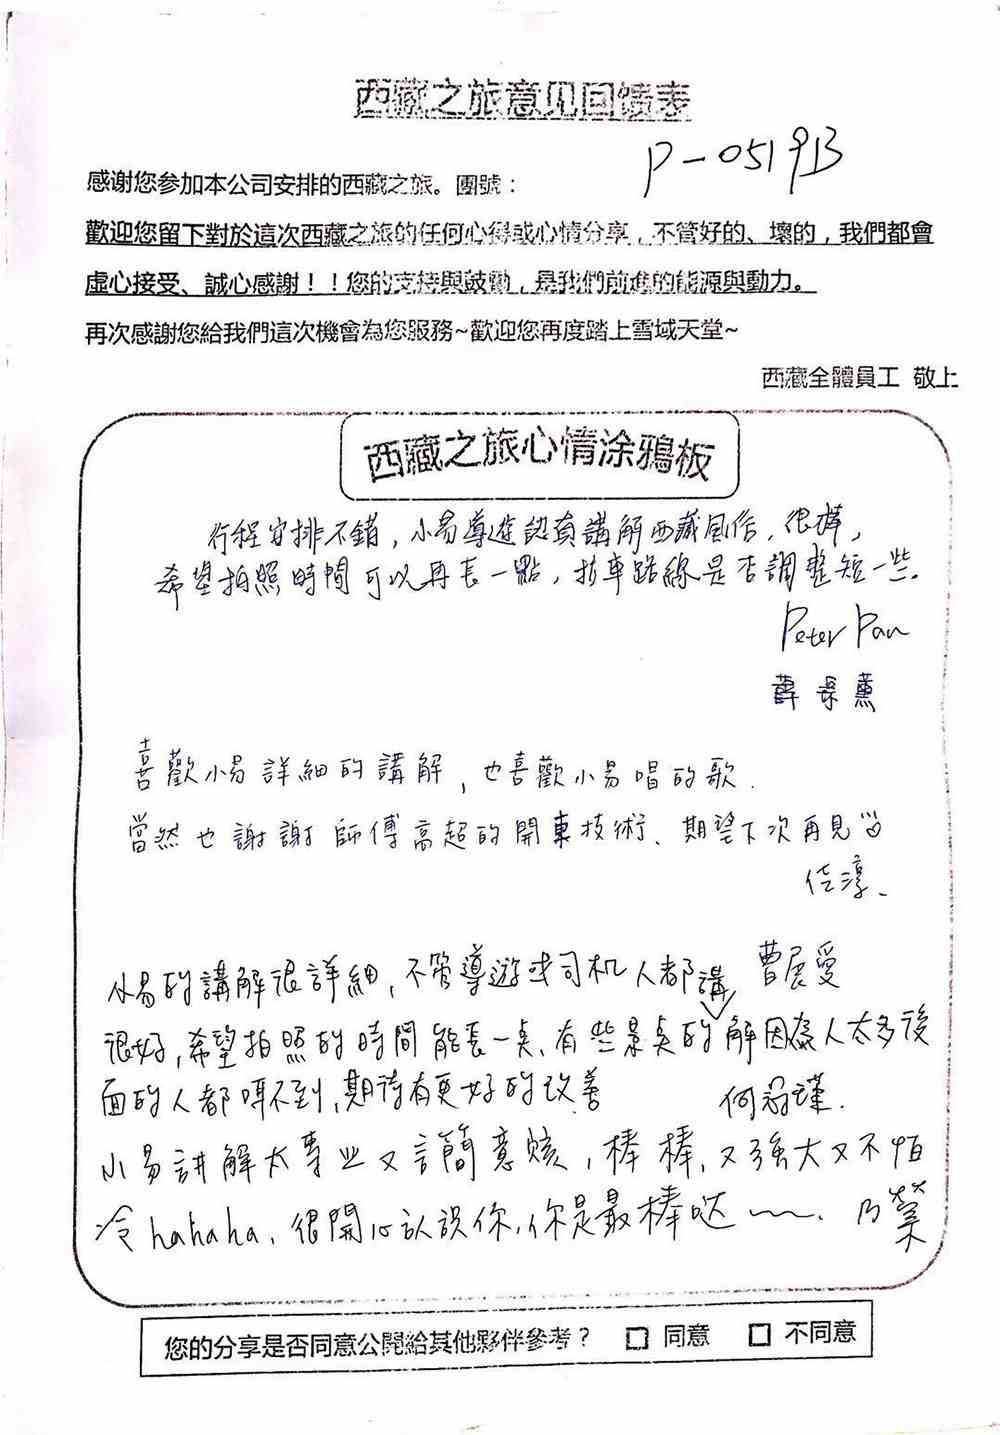 西藏之旅意見回饋表
P-0519B
感谢您参加本公司安排的西藏之旅。團號：
歡迎您留下對於這次西藏之旅的任何心得或心情分享，不管好的、壞的，我們都會
虛心接受、誠心感謝！！您的支持與鼓勵，是我們前進的能源與動力。
再次感謝您給我們這次機會為您服務~歡迎您再度踏上雪域天堂~
西藏全體員工 敬上
西藏之旅心情涂鴉板
行程安排不錯，小易導遊認真講解西藏風俗，很棒，
希望拍照時間可以再長一點，拉車路線是否調整短一些。
Peter Pan
薛 薰
喜歡小易詳細的講解，也喜歡小易唱的歌.
當然也謝謝師傅高超的開車技術、期望下次再見
佳淳、
小易的講解很詳細，不管導遊或司机人都 講 曹展受
很好，希望拍照的時間能長一點、有些景點的解因為人太多後
面的人都听不到，期待有更好的改善 何 瑾.
小易讲解太專业又言簡意賅，棒棒，又強大又不怕
冷hahaha、很開心认识你，你是最棒哒~~. 乃榮
您的分享是否同意公開給其他夥伴參考？ □ 同意 □ 不同意